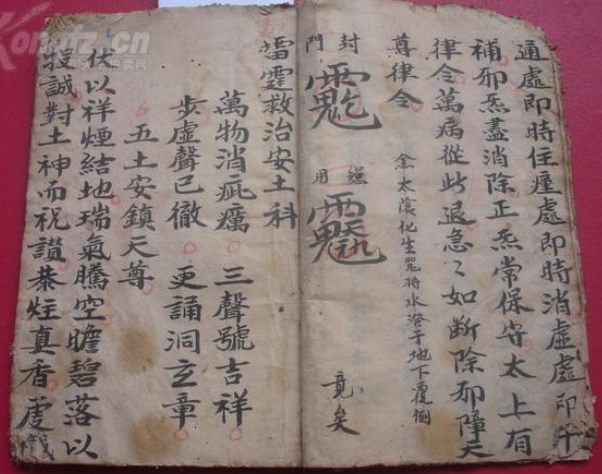 通處即時住瘇處即時消虛處即
補邪炁盡消除正炁常保守太上有
律令萬病從此退急〻如斷除邪障天
尊律令
念太淵化生咒將水潑于地下覆倒
封門
用
竟矣
雷霆救治安土科
萬物消疵癘 三聲號吉祥
步虛聲已徹 更誦洞玄章
五土安鎮天尊
伏以祥煙結地瑞氣騰空瞻碧落以
投誠對土神而祝讚恭炷真香虔
Kongfz.cn